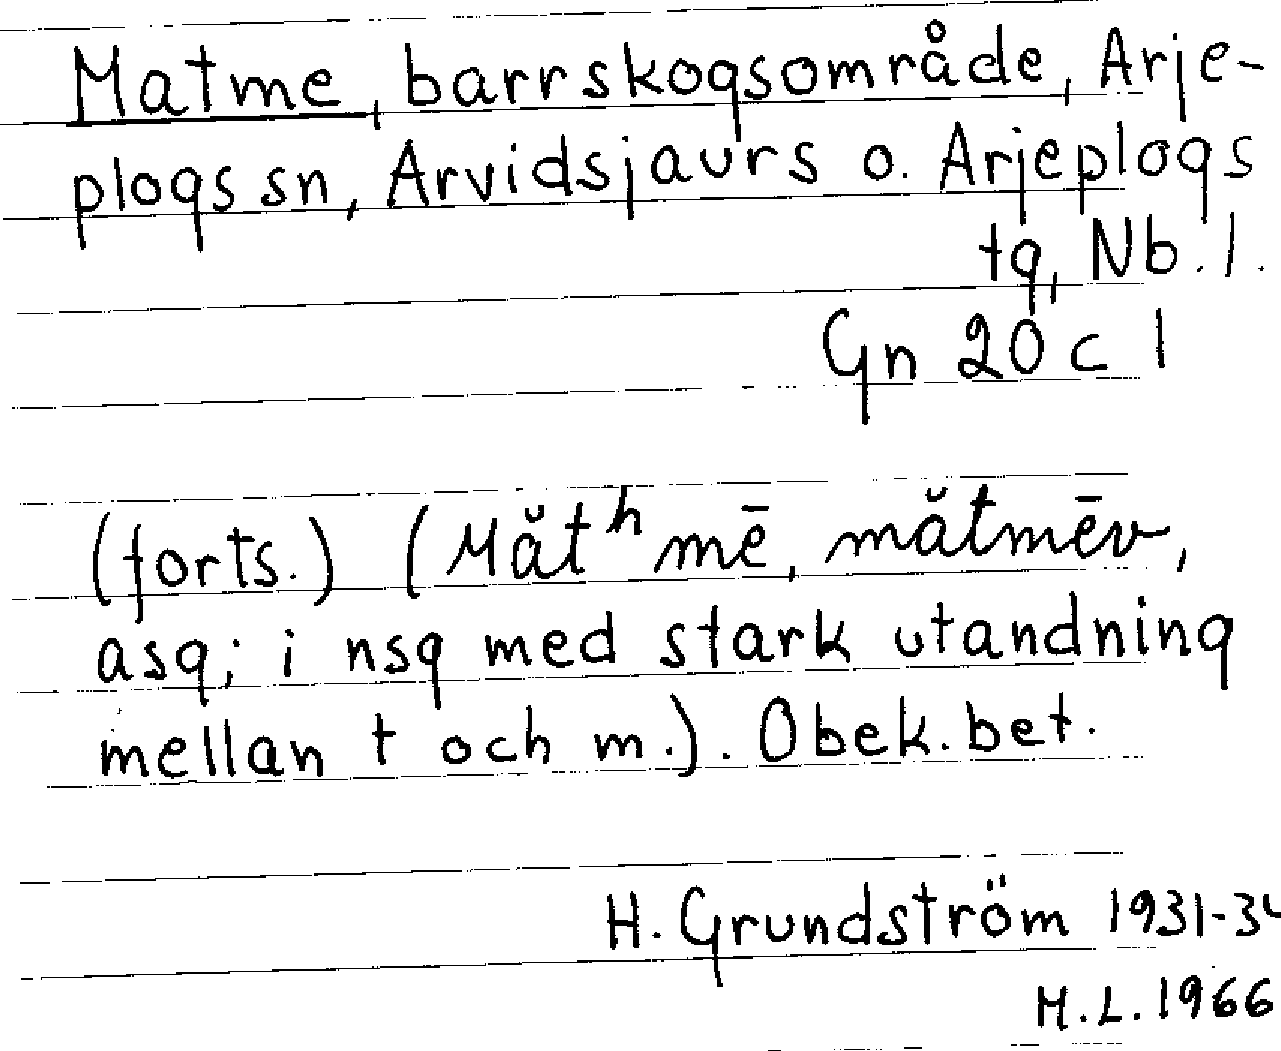 Matme, barrskogsområde, Arje-
plogs sn, Arvidsjaurs o. Arjeplogs
tg, Nb. l.
Gn 20 c 1
(forts.) (Mătʰmē, mătmēv,
asg; i nsg med stark utandning
mellan t och m.). Obek. bet.
H. Grundström 1931-34
M.L. 1966